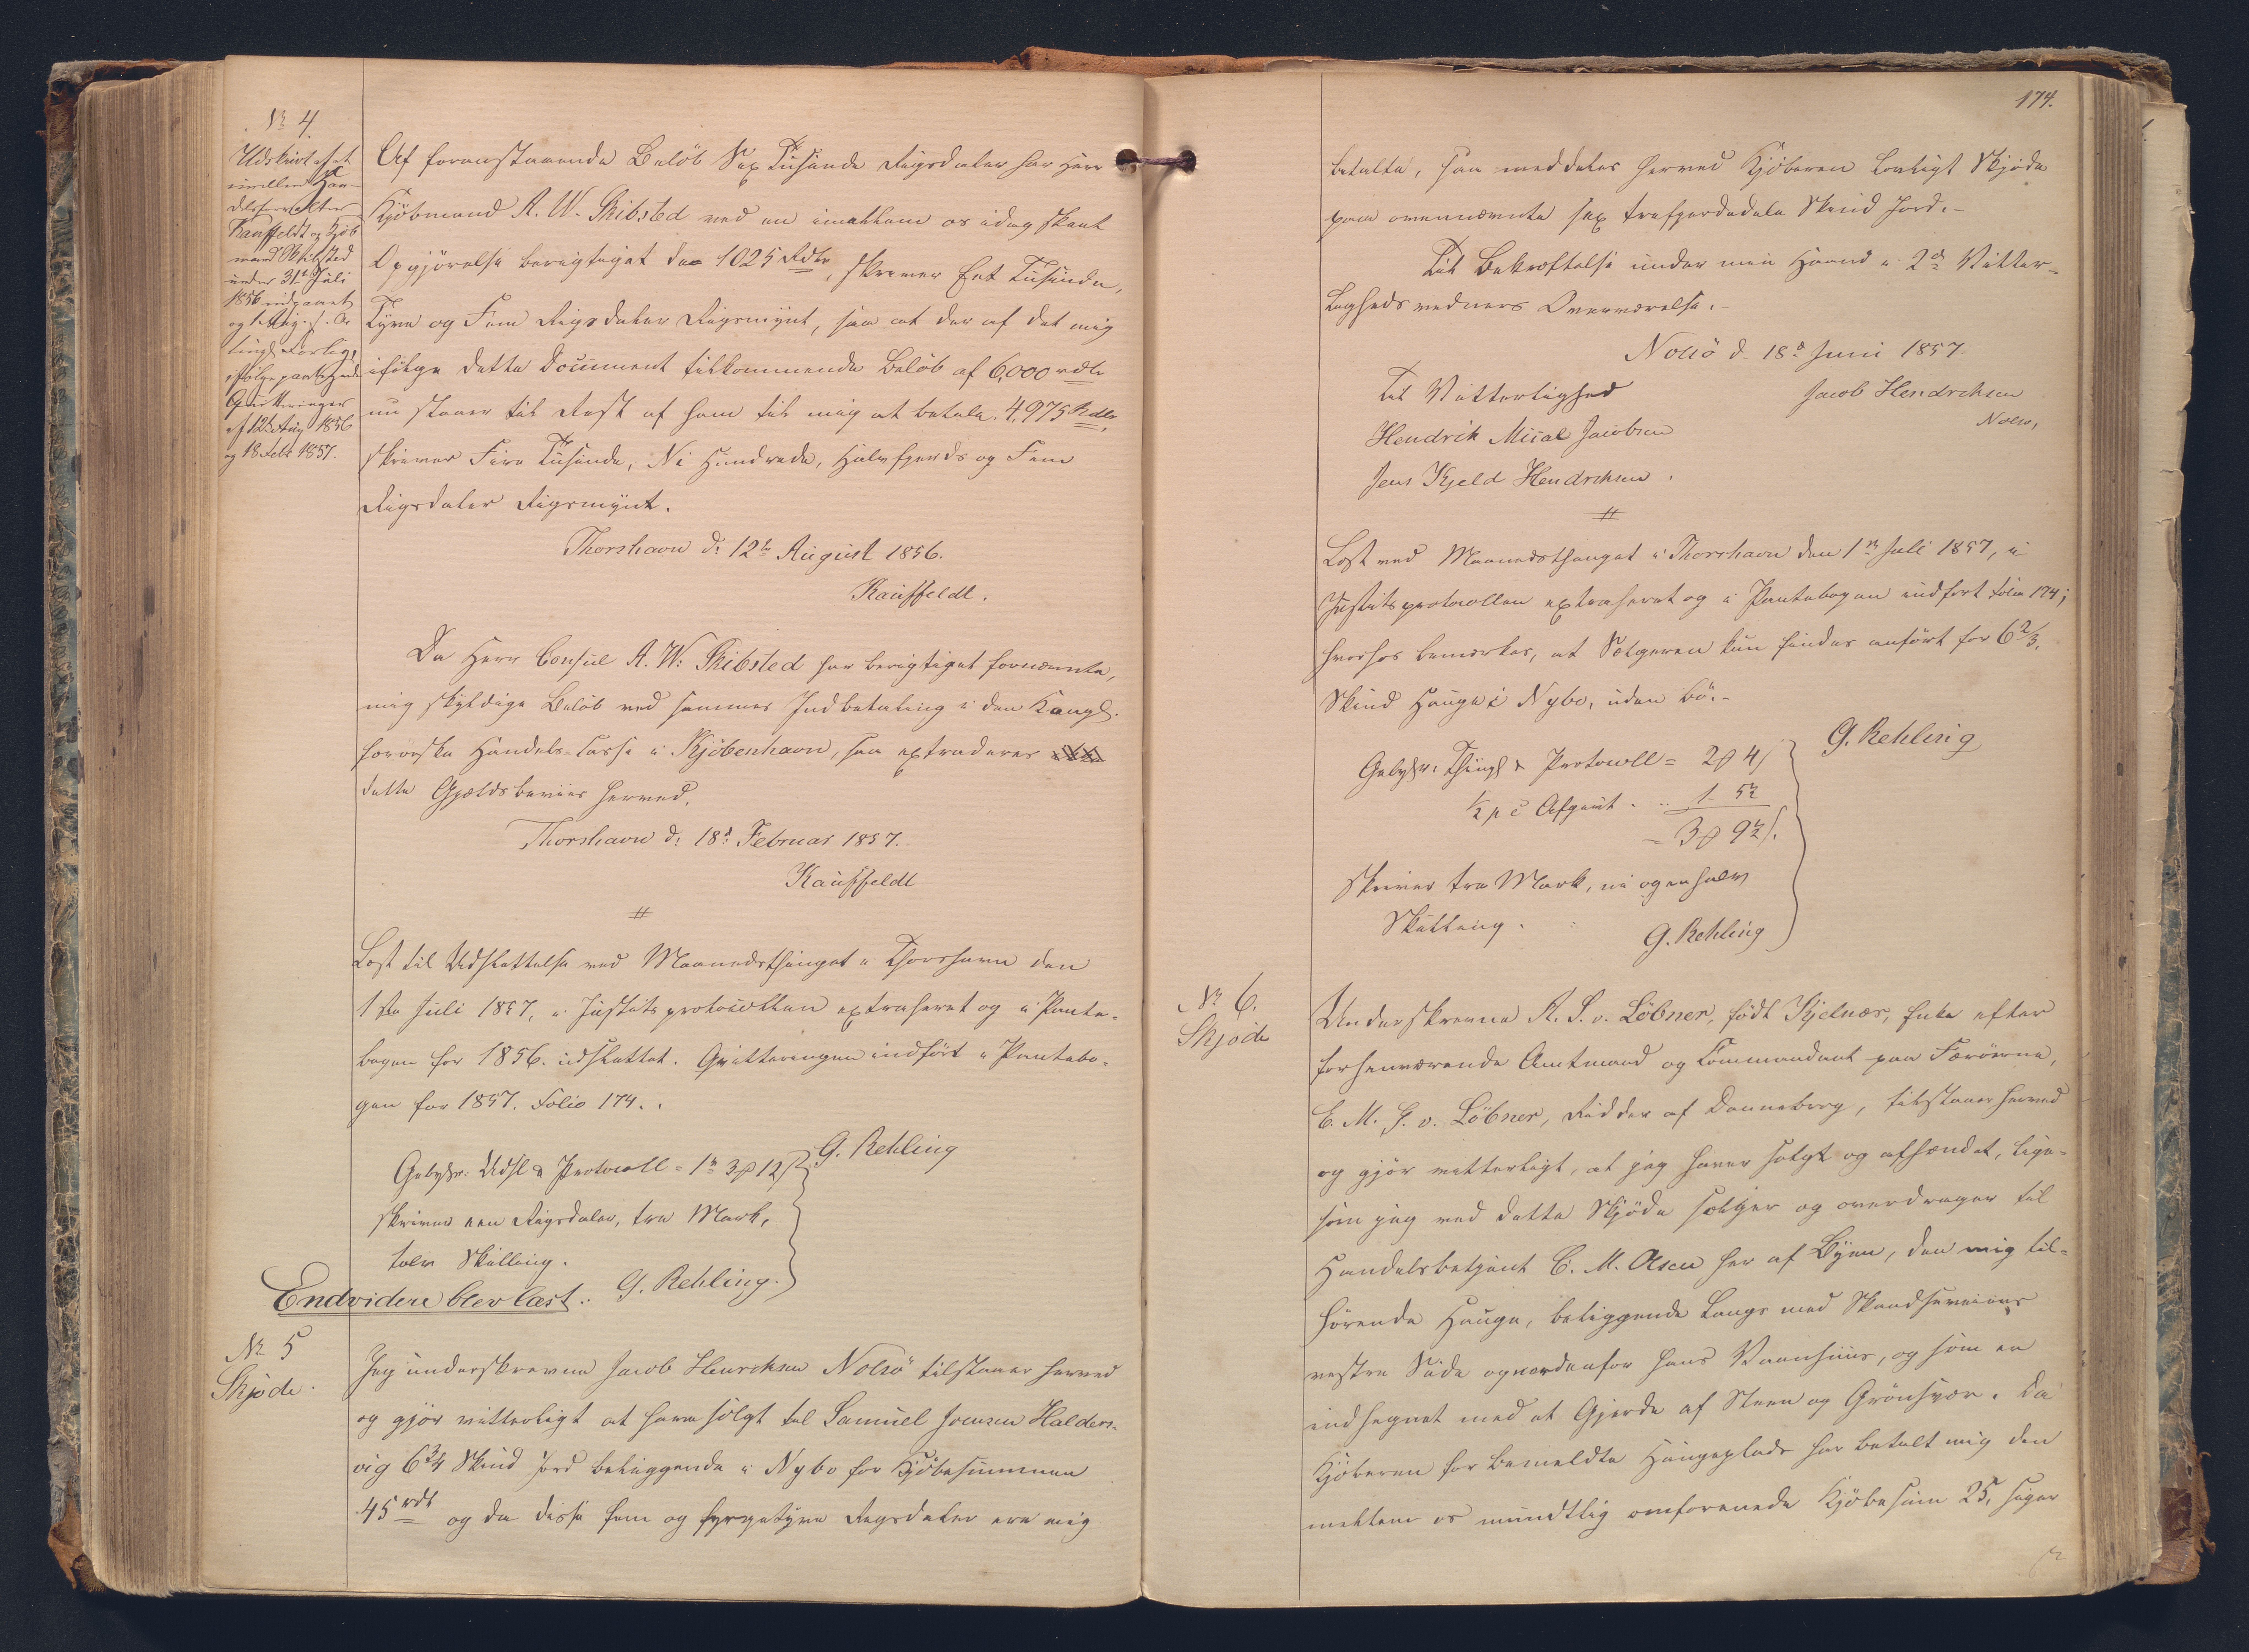 No 4.
Udslettet et
imellem Han-
delsforvalter
Kauffeldt og Kjöb
mand Skibsted
under 31te Juli
1856 indgaaet
Forlig,
ifølge paategnede
Qvitteringer
af 12te Aug 1856
og 18 Febr 1857.
Af foranstaaende Beløb Sex Tusinde Rigsdaler har Herr
Kjöbmand A. W. Skibsted ved en imellem os idag skeet
Opgjörelse berigtiget de 1025 Rdlr, skriver Eet Tusinde,
Tyve og Fem Rigsdaler Rigsmynt, saa at der af det mig
ifölge dette Document tilkommende Belöb af 6,000 rdlr
nu staaer til Rest af ham til mig at betale 4,975 Rdlr,
skriver Fire Tusinde, Ni Hundrede, Halvfjerds og Fem
Rigsdaler Rigsmynt.
Thorshavn d: 12te August 1856.
Kauffeldt.
Da Herr Consul A. W. Skibsted har berigtiget fornævnte,
mig skyldige Belöb ved sammes Indbetaling i den Kongl.
færøiske Handels-Casse i Kjöbenhavn, saa extraderes
dette Gjældsbeviis herved.
Thorshavn d: 18d Februar 1857.
Kauffeldt
#
Læst til Udslettelse ved Maanedsthinget i Thorshavn den
1ste Juli 1857, i Justitsprotocollen extraheret og i Pante-
bogen for 1856 udslettet. Qvitteringen indfört i Pantebo-
gen for 1857. Folio 174.
Gebyhr: Udsl & Protocoll = 1rd 3ß 12s
skriver een Rigsdaler, tre Mark,
tolv Skilling.
G. Rehling
G. Rehling.
Endvidere blev læst:
No 5
Skjøde.
Jeg underskrevne Jacob Henrchsen Nolsö tilstaaer herved
og gjör vitterligt at have solgt til Samuel Joensen Halders-
vig 6 3/4 Skind Jord beliggende i Nybo for Kjöbesummen
45 rdl og da disse fem og fyrgetyve Rigsdaler ere mig
174.
betalte, saa meddeles herved Kjöberen Lovligt Skjöde
paa ovennævnte sex trefjerdedele Skind Jord.-
Til Bekræftelse under min Haand i 2de Vitter-
lighedsvidners Overværelse.-
Nolsö d. 18d Juni 1857.
Til Vitterlighed
Jacob Hendrchsen
Nolso,
Hendrik Misal Jacobsen
Jens Kjeld Hendrchsen.
#
Læst ved Maanedsthinget i Thorshavn den 1ste Juli 1857, i
Justitsprotocollen extraheret og i Pantebogen indført Folio 174;
hvorhos bemærkes, at Sælgeren kun findes anført for 6 2/3
Skind Hauge i Nybo, uden Bö.-
Gebyhr: Thingl & Protocoll = 2ß 4s
1/2 p c Afgivt . . 1- 5 1/2
= 3ß 9 1/2s.
skriver tre Mark, ni og en halv
Skilling.
G. Rehling
G. Rehling
No 6.
Skjøde
Underskrevne A. S. v. Löbner, födt Kjelnæs, Enke efter
forhenværende Amtmand og Commandant paa Færöerne,
E. M. G. v. Löbner, Ridder af Dannebrog, tilstaaer herved
og gjör vitterligt, at jeg haver solgt og afhændet, lige-
som jeg ved dette Skjöde sælger og overdrager til
Handelsbetjent C. M. Olsen her af Byen, den mig til-
hörende Hauge, beliggende langs med
vestre Side og nordenfor hans Vaanhuus, og som er
indhegnet med et Gjerde af Steen og Grönsvær. Da
Kjöberen for bemeldte Haugeplads har betalt mig den
mellem os mundtlig omforenede Kjöbesum 25, siger